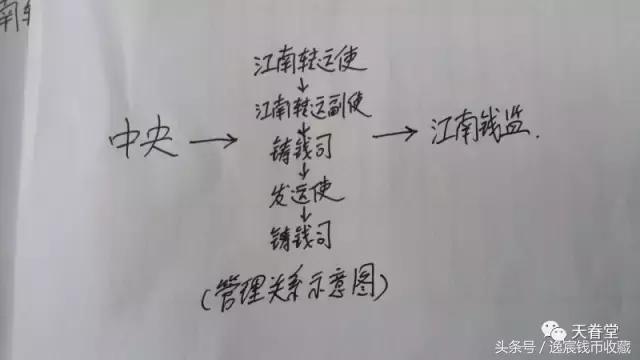 江南转运使
↓
江南转运副使
↓
中央 → 铸钱司 → 江南钱监.
↓
发运使
↓
铸钱司
(管理关系示意图)
天眷堂
头条号/逸宸钱币收藏